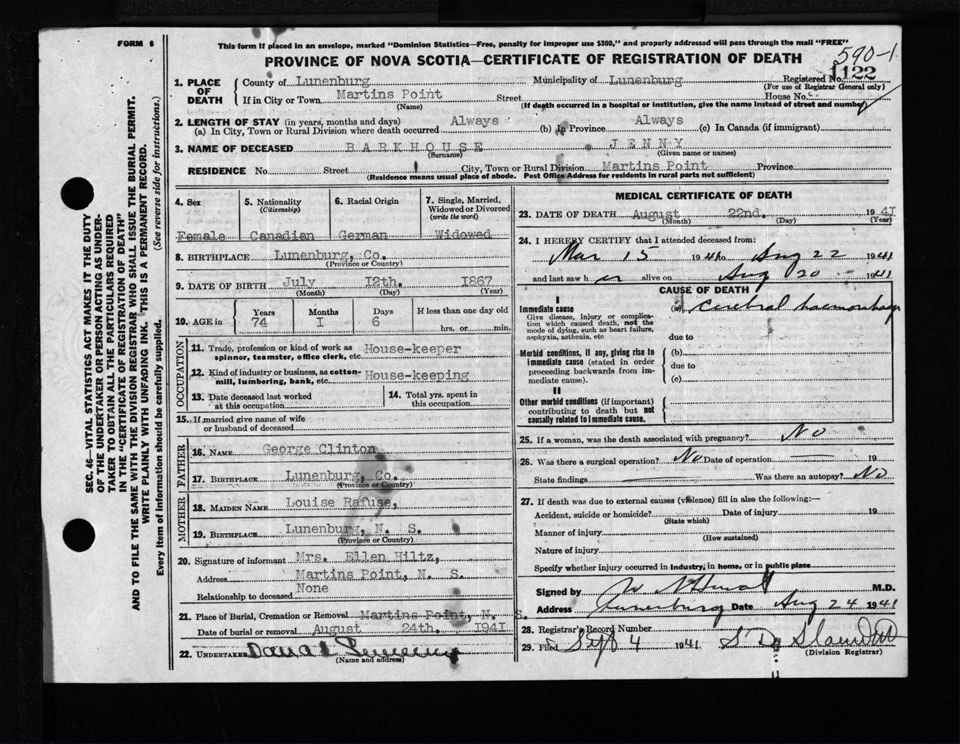 FORM 6
This form if placed in an envelope, marked "Dominion Statistics—Free, penalty for improper use $300," and properly addressed will pass through the mail "FREE"
590-1
PROVINCE OF NOVA SCOTIA—CERTIFICATE OF REGISTRATION OF DEATH
1. PLACE OF DEATH
County of Lunenburg Municipality of Lunenburg Registered No. 1122
(For use of Registrar General only)
If in City or Town Martins Point Street House No.
(Name) (If death occurred in a hospital or institution, give the name instead of street and number)
2. LENGTH OF STAY (in years, months and days)
(a) In City, Town or Rural Division where death occurred Always (b) In Province Always (c) In Canada (if immigrant)
3. NAME OF DECEASED BARKHOUSE JENNY
(Surname) (Given name or names)
RESIDENCE No. Street City, Town or Rural Division Martins Point Province
(Residence means usual place of abode. Post Office Address for residents in rural parts not sufficient)
4. Sex Female
5. Nationality (Citizenship) Canadian
6. Racial Origin German
7. Single, Married, Widowed or Divorced (write the word) Widowed
8. BIRTHPLACE Lunenburg, Co.
(Province or Country)
9. DATE OF BIRTH July 12th. 1867
(Month) (Day) (Year)
10. AGE in Years 74 Months I Days 6 If less than one day old hrs. or min.
OCCUPATION
11. Trade, profession or kind of work as spinner, teamster, office clerk, etc. House-keeper
12. Kind of industry or business, as cotton-mill, lumbering, bank, etc. House-keeping
13. Date deceased last worked at this occupation
14. Total yrs. spent in this occupation
15. If married give name of wife or husband of deceased
FATHER
16. NAME George Clinton
17. BIRTHPLACE Lunenburg, Co.
(Province or Country)
MOTHER
18. MAIDEN NAME Louise Rafuse,
19. BIRTHPLACE Lunenburg, N. S.
(Province or Country)
20. Signature of informant Mrs. Ellen Hiltz,
Address Martins Point, N. S.
Relationship to deceased None
21. Place of Burial, Cremation or Removal Martins Point, N. S.
Date of burial or removal August 24th. 1941
22. UNDERTAKER
(Name and address)
MEDICAL CERTIFICATE OF DEATH
23. DATE OF DEATH August 22nd. 1941
(Month) (Day) (Year)
24. I HEREBY CERTIFY that I attended deceased from:
Mar 15 1941 to Aug 22 1941
and last saw her alive on Aug 20 1941
CAUSE OF DEATH
I
Immediate cause
Give disease, injury or complication which caused death, not the mode of dying, such as heart failure, asphyxia, asthenia, etc.
(a) Cerebral haemorrhage
due to
Morbid conditions, if any, giving rise to immediate cause (stated in order proceeding backwards from immediate cause).
(b)
due to
(c)
II
Other morbid conditions (if important) contributing to death but not causally related to immediate cause.
25. If a woman, was the death associated with pregnancy? No
26. Was there a surgical operation? No Date of operation 19
State findings Was there an autopsy? No
27. If death was due to external causes (violence) fill in also the following:—
Accident, suicide or homicide? Date of injury 19
(State which)
Manner of injury
(How sustained)
Nature of injury
Specify whether injury occurred in industry, in home, or in public place
Signed by M.D.
Address Lunenburg Date Aug 24 1941
28. Registrar's Record Number
29. Filed Sept 4 1941
(Division Registrar)
SEC. 46—VITAL STATISTICS ACT MAKES IT THE DUTY
OF THE UNDERTAKER OR PERSON ACTING AS UNDER-
TAKER TO OBTAIN ALL THE PARTICULARS REQUIRED
IN THE "CERTIFICATE OF REGISTRATION OF DEATH"
AND TO FILE THE SAME WITH THE DIVISION REGISTRAR WHO SHALL ISSUE THE BURIAL PERMIT.
WRITE PLAINLY WITH UNFADING INK. THIS IS A PERMANENT RECORD.
Every item of information should be carefully supplied. (See reverse side for instructions.)